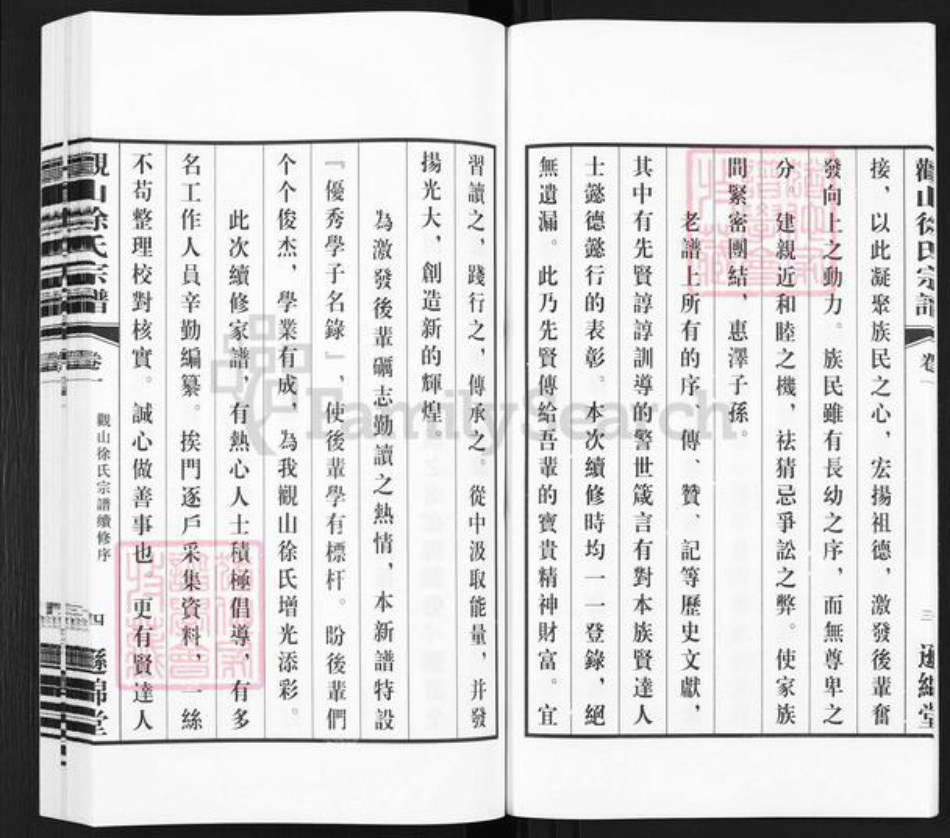 觀山徐氏宗譜
卷
三
接，以此凝聚族民之心，宏揚祖德，激發後輩奮
發向上之動力。族民雖有長幼之序，而無尊卑之
分。建親近和睦之機，祛猜忌爭訟之弊。使家族
間緊密團結，惠澤子孫。
老譜上所有的序、傳、贊、記等歷史文獻，
其中有先賢諄諄訓導的警世箴言有對本族賢達人
士懿德懿行的表彰。本次續修時均一一登錄，絕
無遺漏。此乃先賢傳給吾輩的寶貴精神財富。宜
習讀之，踐行之，傳承之。從中汲取能量，并發
揚光大，創造新的輝煌。
為激發後輩礪志勤讀之熱情，本新譜特設
『優秀學子名錄』，使後輩學有標杆。盼後輩們
个个俊杰，學業有成，為我觀山徐氏增光添彩。
此次續修家譜，有熱心人士積極倡導，有多
名工作人員辛勤編纂。挨門逐戶采集資料，一絲
不苟整理校對核實。誠心做善事也。更有賢達人
觀山徐氏宗譜
卷一
觀山徐氏宗譜續修序
四
FamilySearch